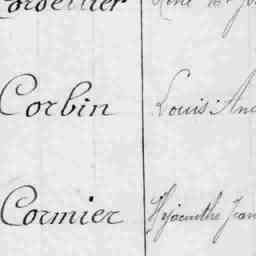 Cordellier
Corbin Louis And
Cormier Hyacinthe Jean